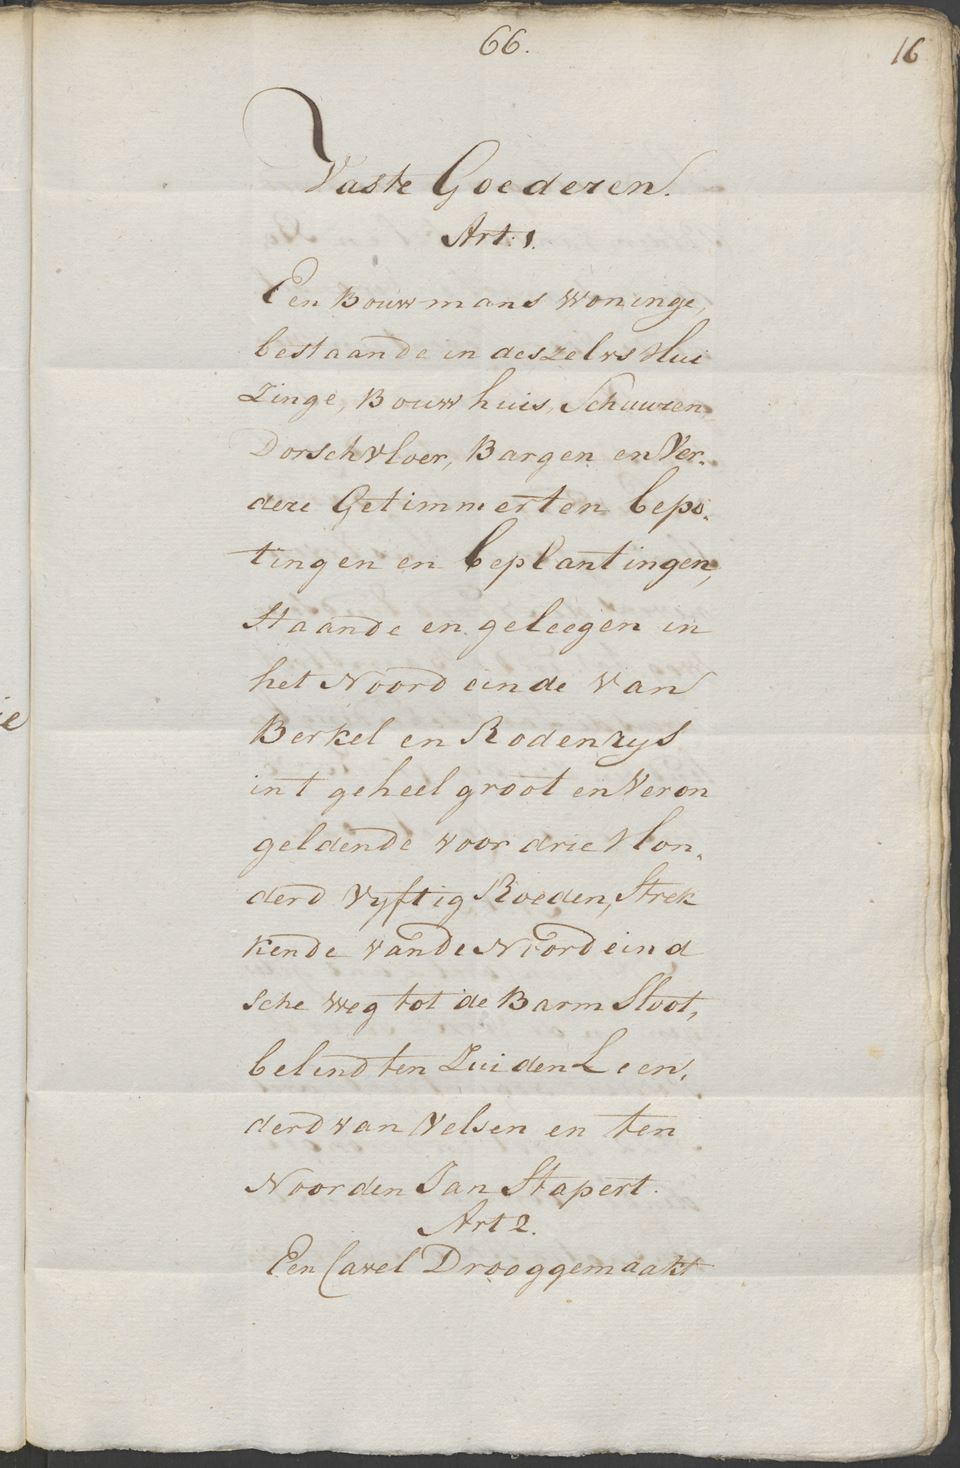 66.
16
Vaste Goederen.
Art: 1.
Een Bouwmans Woninge,
bestaande in deszelvs Hui
zinge, Bouwhuis, Schuuren
Dorschvloer, Bargen en Ver.
dere Getimmerten bepo.
tingen en beplantingen,
Staande en geleegen in
het Noord einde van
Berkel en Rodenrys
int geheel groot en Veron
geldende voor drie Hon.
derd Vyftig Roeden, Strek
kende van de Noordeind
sche weg tot de Barm Sloot,
belend ten Zuiden Leen.
derd van Velsen en ten
Noorden Jan Stapert.
Art 2.
Een Cavel Drooggemaakt